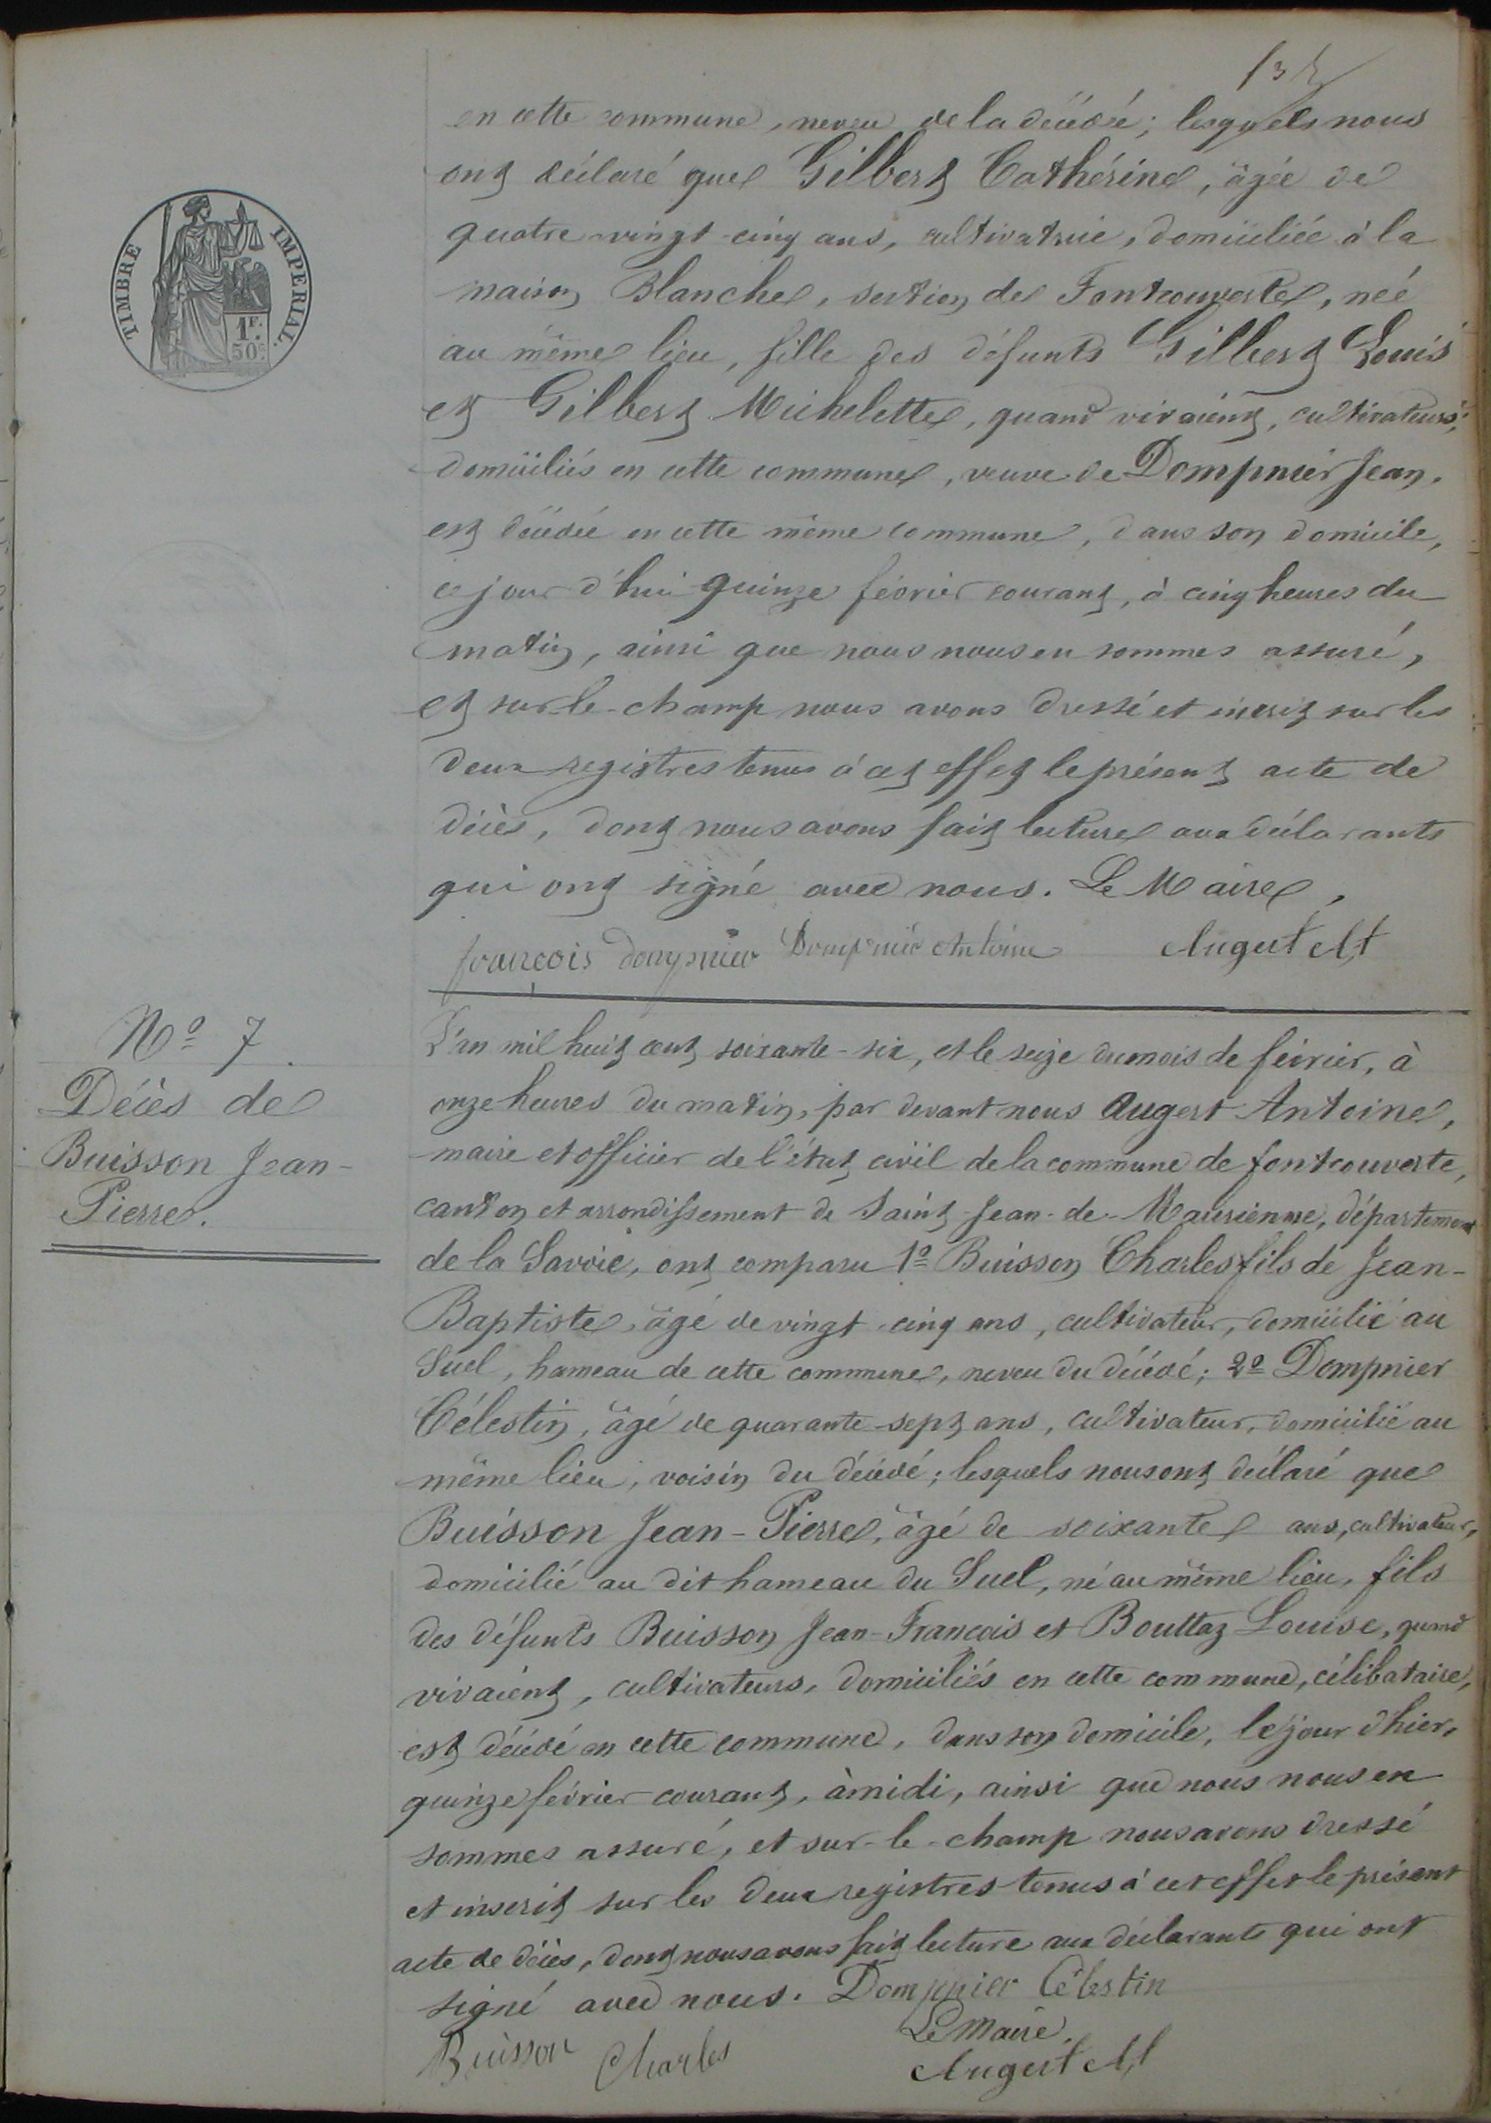 en cette commune, neveu de la décédé; lesquels nous
ont déclaré que Gilbert Cathérine, âgée de
quatre-vingt-cinq ans, cultivatrice, domiciliée à la
maison Blanche, section de Fontcouverte, née
au même lieu, fille des défunts Gilbert Louis
et Gilbert Michelette, quand vivaient, cultivateurs,
domiciliés en cette commune, veuve de Dompnier Jean,
est décédée en cette même commune, dans son domicile,
ce jour d'hui quinze février courant, à cinq heures du
matin, ainsi que nous nous en sommes assuré,
et sur-le-champ nous avons dressé et inscrit sur les
deux registres tenus à cet effet le présent acte de
décès, dont nous avons fait lecture aux déclarants
qui ont signé avec nous. Le Maire,
françois dompnier Dompnier Antoine Augert At
TIMBRE IMPERIAL.
1F.
50c
No 7.
Décès de
Buisson Jean-
Pierre.
L'an mil huit cent soixante-six, et le seize du mois de février, à
onze heures du matin, par devant nous Augert Antoine,
maire et officier de l'état civil de la commune de fontcouverte,
canton et arrondissement de Saint-Jean-de-Maurienne, département
de la Savoie, ont comparu 1o Buisson Charles fils de Jean-
Baptiste, âgé de vingt-cinq ans, cultivateur, domicilié au
Suel, hameau de cette commune, neveu du décédé; 2o Dompnier
Célestin, âgé de quarante-sept ans, cultivateur, domicilié au
même lieu, voisin du décédé; lesquels nous ont déclaré que
Buisson Jean-Pierre, âgé de soixante ans, cultivateur,
domicilié au dit hameau du Suel, né au même lieu, fils
des défunts Buisson Jean-François et Bouttaz Louise, quand
vivaient, cultivateurs, domiciliés en cette commune, célibataire,
est décédé en cette commune, dans son domicile, le jour d'hier,
quinze février courant, à midi, ainsi que nous nous en
sommes assuré, et sur-le-champ nous avons dressé
et inscrit sur les deux registres tenus à cet effet le présent
acte de décès, dont nous avons fait lecture aux déclarants qui ont
signé avec nous. Dompnier Célestin
Le Maire,
Buisson Charles Augert At